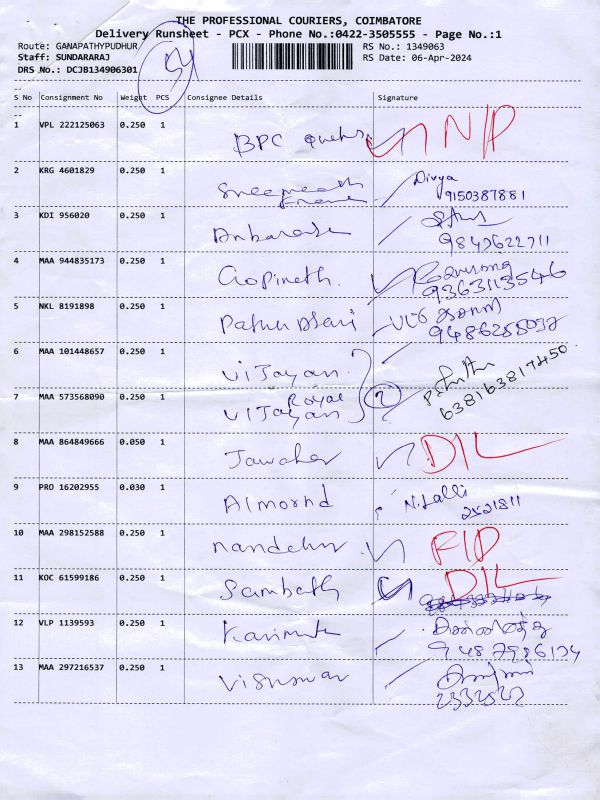 THE PROFESSIONAL COURIERS, COIMBATORE
Delivery Runsheet - PCX - Phone No.:0422-3505555 - Page No.:1
Route: GANAPATHYPUDHUR RS No.: 1349063
Staff: SUNDARARAJ RS Date: 06-Apr-2024
DRS No.: DCJB134906301
54
S No Consignment No Weight PCS Consignee Details Signature
1 VPL 222125063 0.250 1 BPC N/P
2 KRG 4601829 0.250 1 Divya
9150387881
3 KDI 956020 0.250 1 Anbarasu
9847622711
4 MAA 944835173 0.250 1 Gopinath.
9363113546
5 NKL 8191898 0.250 1
6 MAA 101448657 0.250 1 Vijayan
7 MAA 573568090 0.250 1 Royal
Vijayan 2
638163817450
8 MAA 864849666 0.050 1 Jawahar D/L
9 PRO 16202955 0.030 1 Almornd N. Lalli
2521811
10 MAA 298152588 0.250 1
11 KOC 61599186 0.250 1 Sambath D/L
12 VLP 1139593 0.250 1
13 MAA 297216537 0.250 1